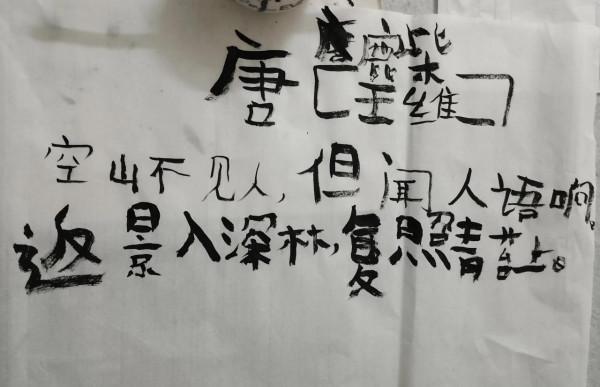 鹿柴
唐[王维]
空山不见人,但闻人语响。
返景入深林,复照青苔上。